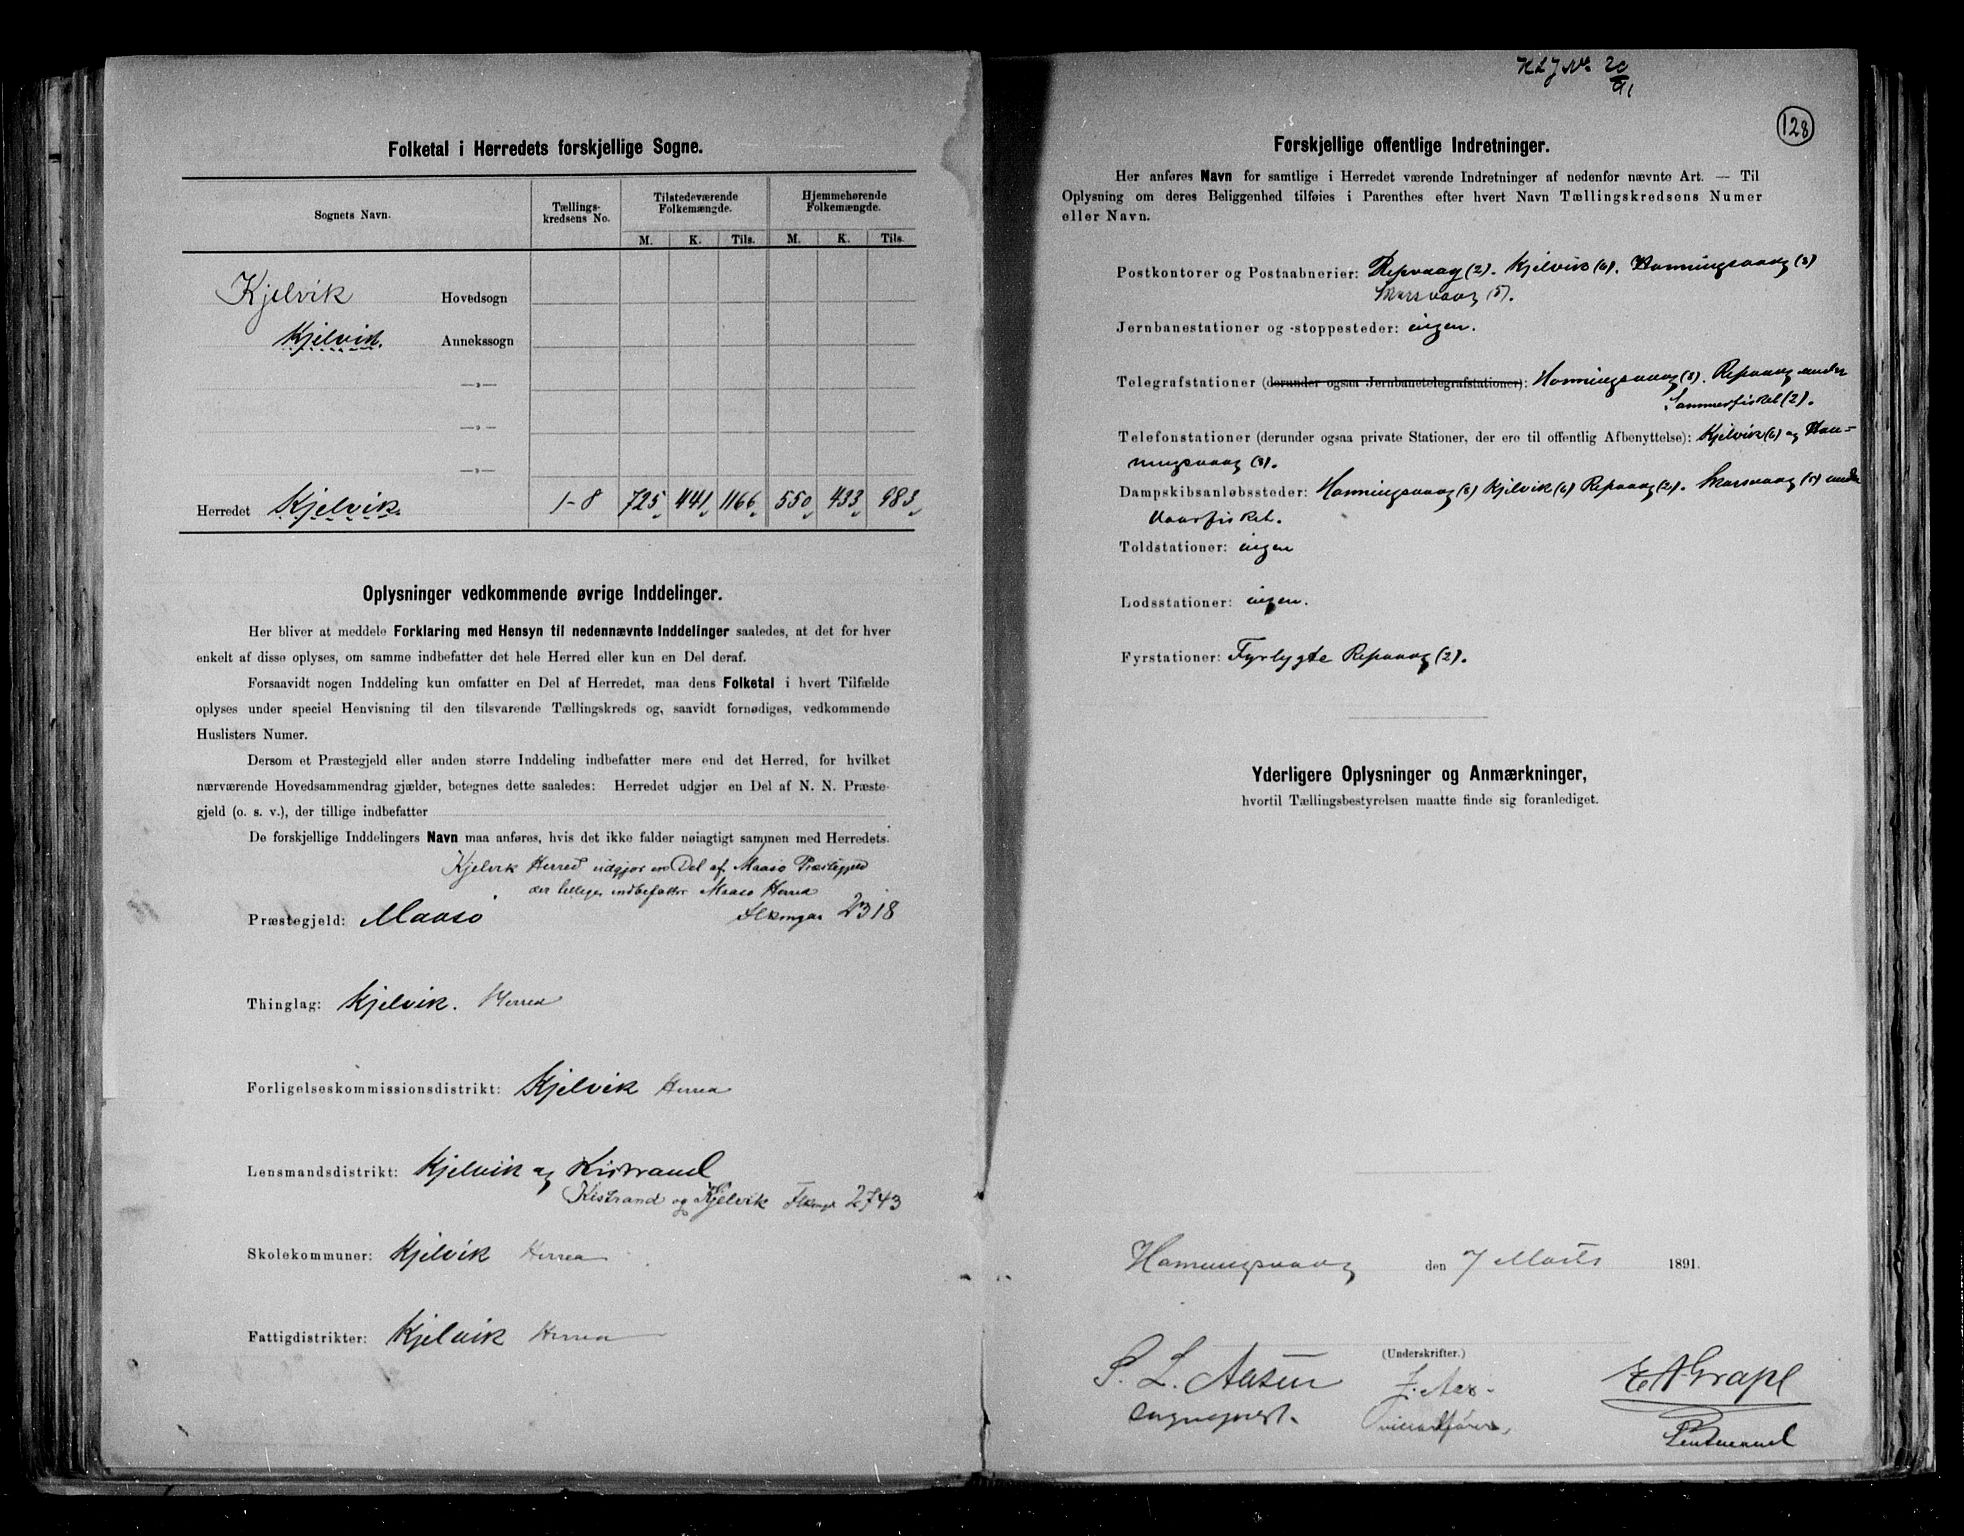 Folketal i Herredets forskjellige Sogne.
Sognets Navn. Tællings- kredsens No. Tilstedeværende Folkemængde. Hjemmehørende Folkemængde.
M. K. Tils. M. K. Tils.
Kjelvik Hovedsogn
Kjelvik. Annekssogn
—„—
—„—
—„—
Herredet Kjelvik. 1-8 725 441 1166 550 433 983
Oplysninger vedkommende øvrige Inddelinger.
Her bliver at meddele Forklaring med Hensyn til nedennævnte Inddelinger saaledes, at det for hver
enkelt af disse oplyses, om samme indbefatter det hele Herred eller kun en Del deraf.
Forsaavidt nogen Inddeling kun omfatter en Del af Herredet, maa dens Folketal i hvert Tilfælde
oplyses under speciel Henvisning til den tilsvarende Tællingskreds og, saavidt fornødiges, vedkommende
Huslisters Numer.
Dersom et Præstegjeld eller anden større Inddeling indbefatter mere end det Herred, for hvilket
nærværende Hovedsammendrag gjælder, betegnes dette saaledes: Herredet udgjør en Del af N. N. Præste-
gjeld (o. s. v.), der tillige indbefatter
De forskjellige Inddelingers Navn maa anføres, hvis det ikke falder nøiagtigt sammen med Herredets.
Kjelvik Herred udgjør en Del af Maasø Præstegjeld
der tillige indbefatter Maasø Herred
Præstegjeld: Maasø Flkmgde 2318
Thinglag: Kjelvik. Herred
Forligelseskommissionsdistrikt: Kjelvik Herred
Lensmandsdistrikt: Kjelvik og Kistrand
Kistrand og Kjelvik Flkmgd 2743
Skolekommuner: Kjelvik Herred
Fattigdistrikter: Kjelvik Herred
128
Forskjellige offentlige Indretninger.
Her anføres Navn for samtlige i Herredet værende Indretninger af nedenfor nævnte Art. — Til
Oplysning om deres Beliggenhed tilføies i Parenthes efter hvert Navn Tællingskredsens Numer
eller Navn.
Postkontorer og Postaabnerier: Repvaag (2). Kjelvik (6). Honningsvaag (8)
Skarsvaag (5).
Jernbanestationer og -stoppesteder: ingen.
Telegrafstationer (derunder ogsaa Jernbanetelegrafstationer): Honningsvaag (8). Repvaag under
Sommerfisket (2).
Telefonstationer (derunder ogsaa private Stationer, der ere til offentlig Afbenyttelse): Kjelvik (6) og Hon-
ningsvaag (8).
Dampskibsanløbssteder: Honningsvaag (8) Kjelvik (6) Repvaag (2). Skarsvaag (5) under
Vaarfisket.
Toldstationer: ingen
Lodsstationer: ingen.
Fyrstationer: Fyrlygte Repvaag (2).
Yderligere Oplysninger og Anmærkninger,
hvortil Tællingsbestyrelsen maatte finde sig foranlediget.
Honningsvaag den 7 Marts 1891.
(Underskrifter.)
S. L. Aasen
Sognepræst.
E A Grape
Lensmand